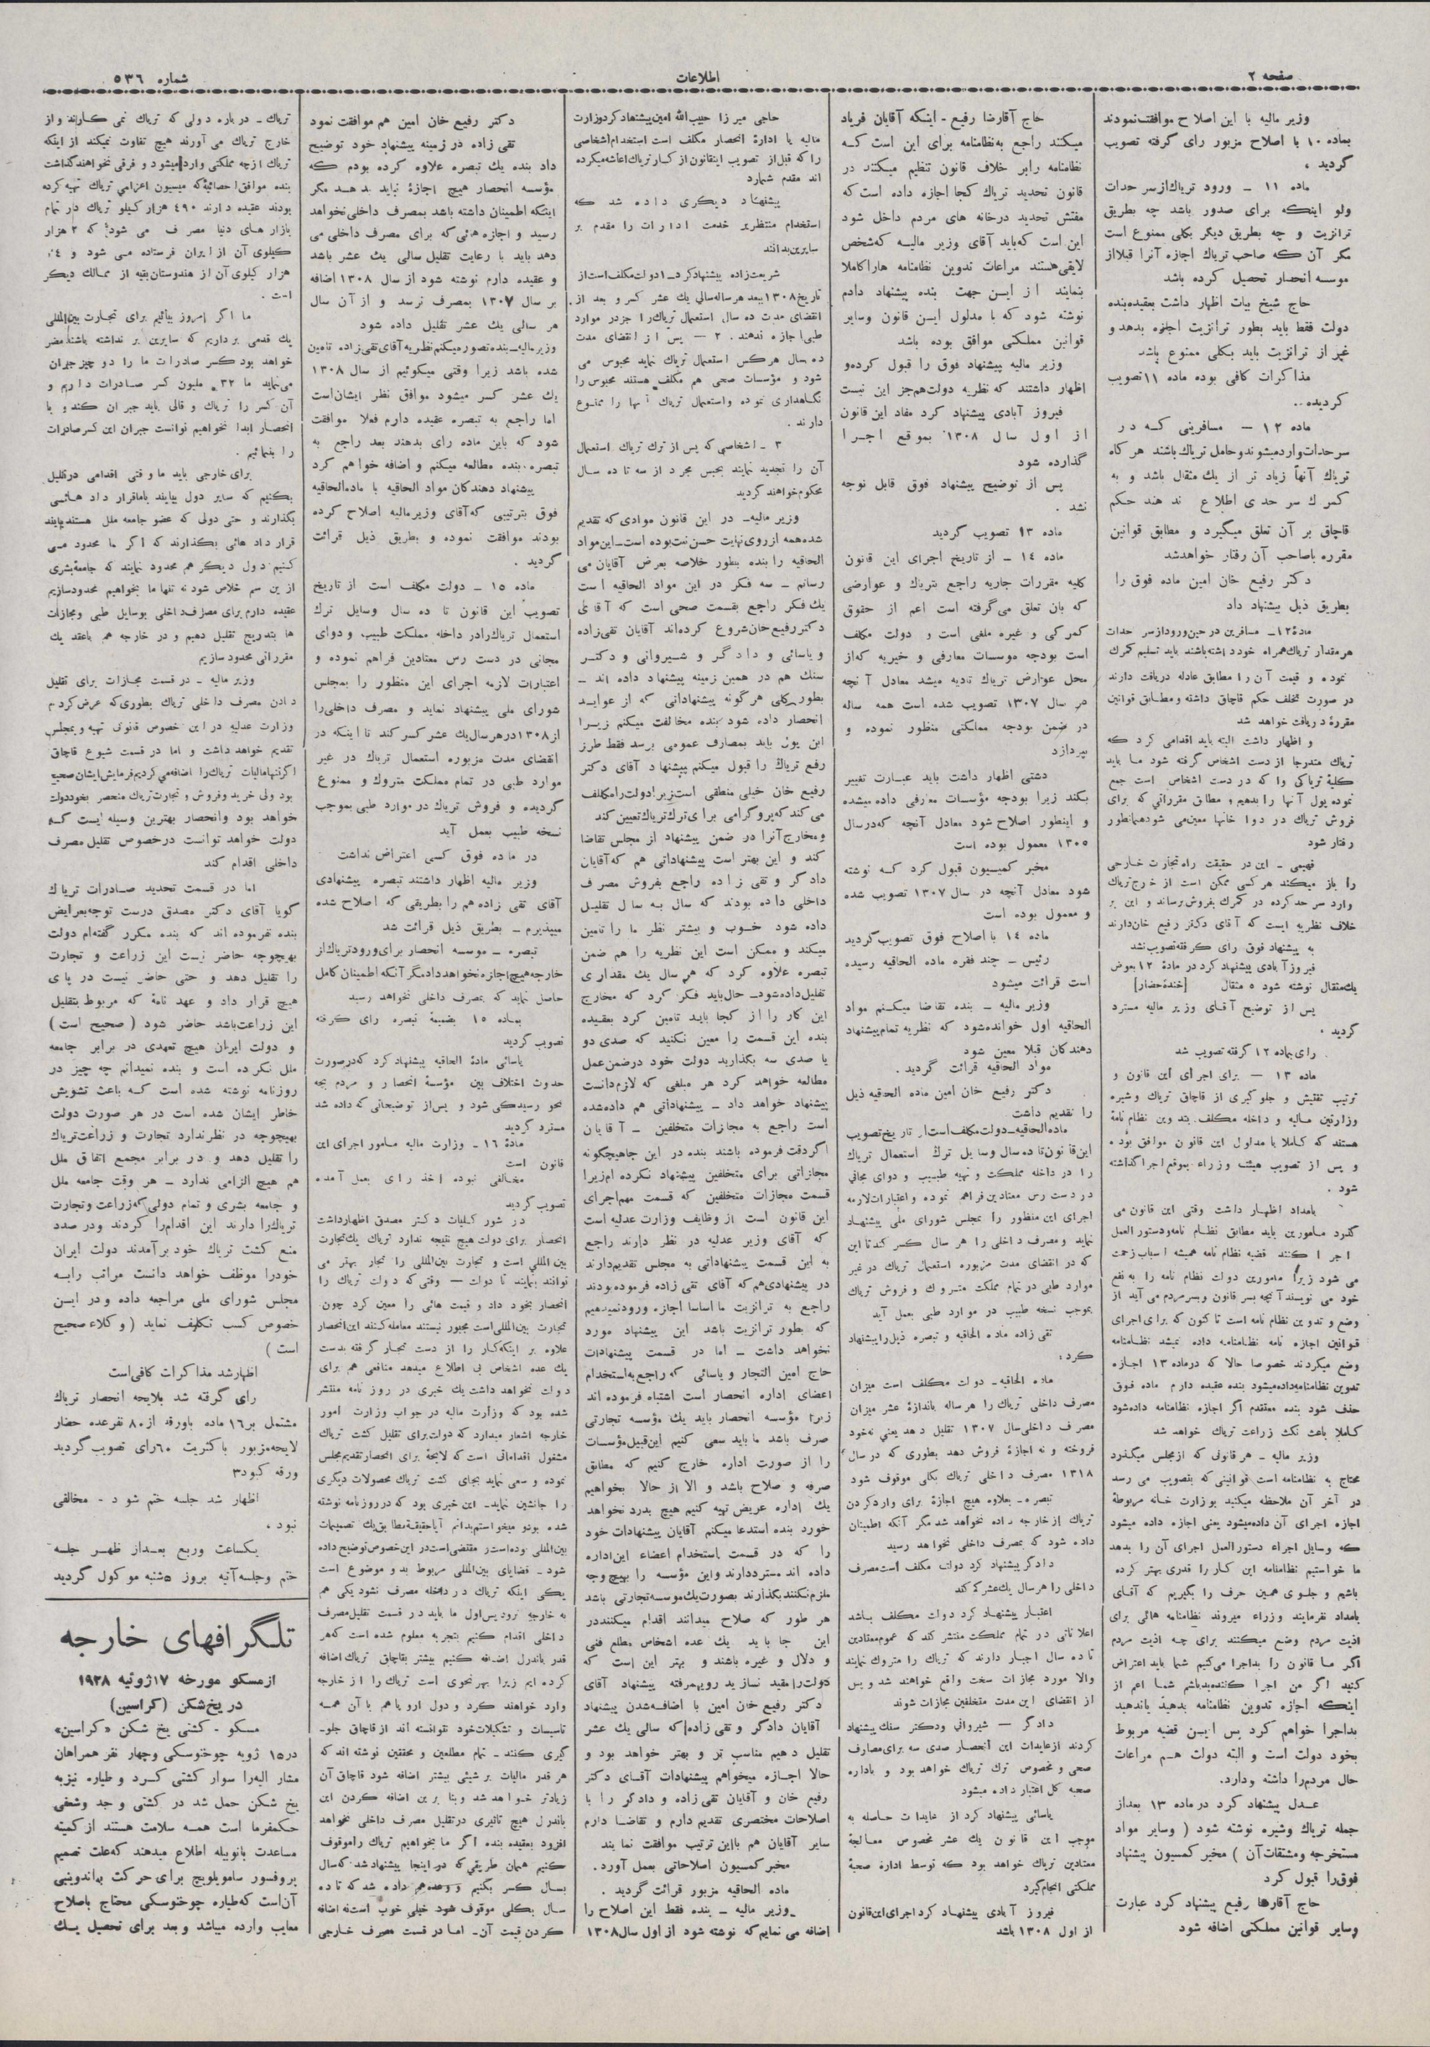 صفحه ۲
اطلاعات
شماره ۵۳۶
وزیر مالیه با این اصلاح موافقت نمودند
بماده ۱۰ با اصلاح مزبور رأی گرفته تصویب
گردید .
ماده ۱۱ - ورود تریاك از سر حدات
ولو اینکه برای صدور باشد چه بطریق
ترانزیت و چه بطریق دیگر بکلی ممنوع است
مگر آن که صاحب تریاك اجازه آنرا قبلا از
موسسه انحصار تحصیل کرده باشد
حاج شیخ بیات اظهار داشت بعقیده بنده
دولت فقط باید بطور ترانزیت اجازه بدهد و
غیر از ترانزیت باید بکلی ممنوع باشد
مذاکرات کافی بوده ماده ۱۱ تصویب
گردیده .
ماده ۱۲ - مسافرینی که در
سرحدات وارد میشوند و حامل تریاك باشند هر گاه
تریاك آنها زیاد تر از یك مثقال باشد و به
گمرك سر حدی اطلاع ندهند حکم
قاچاق بر آن تعلق میگیرد و مطابق قوانین
مقرره باصاحب آن رفتار خواهد شد
دکتر رفیع خان امین ماده فوق را
بطریق ذیل پیشنهاد داد
ماده ۱۲- مسافرین در حین ورود از سر حدات
هر مقدار تریاك همراه خود داشته باشند باید تسلیم گمرك
نموده و قیمت آن را مطابق عادله دریافت دارند
در صورت تخلف حکم قاچاق داشته و مطابق قوانین
مقرره دریافت خواهد شد
و اظهار داشت البته باید اقدامی کرد که
تریاك متدرجا از دست اشخاص گرفته شود ما باید
کلیه تریاکی را که در دست اشخاص است جمع
نموده پول آنها را بدهیم و مطابق مقرراتی که برای
فروش تریاك در دوا خانها معین می شود همانطور
رفتار شود
فهیمی - این در حقیقت راه تجارت خارجی
را باز میکند هر کسی ممکن است از خارج تریاك
وارد سر حد کرده در گمرك بفروش رساند و این بر
خلاف نظریه ایست که آقای دکتر رفیع خان دارند
به پیشنهاد فوق رای گرفته تصویب نشد
فیروز آبادی پیشنهاد کرد در ماده ۱۲ بعوض
یك مثقال نوشته شود ۵ مثقال [خنده حضار]
پس از توضیح آقای وزیر مالیه مسترد
گردید .
رای بماده ۱۲ گرفته تصویب شد
ماده ۱۳ - برای اجرای این قانون و
ترتیب تفتیش و جلو گیری از قاچاق تریاك و شیره
وزارتین مالیه و داخله مکلف بتدوین نظام نامهٔ
هستند که کاملا با مدلول این قانون موافق بوده
و پس از تصویب هیئت وزراء بموقع اجرا گذاشته
شود .
بامداد اظهار داشت وقتی این قانون می
گذرد مامورین باید مطابق نظام نامه و دستور العمل
اجرا کنند قضیه نظام نامه همیشه اسباب زحمت
می شود زیرا مامورین دولت نظام نامه را به نفع
خود می نویسند آنچه بسر قانون و بسر مردم می آید از
وضع و تدوین نظام نامه است تا کنون که برای اجرای
قوانین اجازه نامه نظامنامه داده نمیشد نظامنامه
وضع میکردند خصوصا حالا که در ماده ۱۳ اجازه
تدوین نظامنامه داده میشود بنده عقیده دارم ماده فوق
حذف شود بنده معتقدم اگر اجازه نظامنامه داده شود
کاملا باعث نکث زراعت تریاك خواهد شد
وزیر مالیه - هر قانونی که از مجلس میگذرد
محتاج به نظامنامه است قوانینی که بتصویب می رسد
در آخر آن ملاحظه میکنید بوزارت خانه مربوطهٔ
اجازه اجرای آن داده میشود یعنی اجازه داده میشود
که وسایل اجراء دستور العمل اجرای آن را بدهد
ما خواستیم نظامنامه این کار را قدری بهتر کرده
باشیم و جلوی همین حرف را بگیریم که آقای
بامداد نفرمایند وزراء میروند نظامنامه هائی برای
اذیت مردم وضع میکنند برای چه اذیت مردم
اگر ما قانون را بداجرا میکنیم شما باید اعتراض
کنید اگر من اجرا کننده بد باشم شما اعم از
اینکه اجازه تدوین نظامنامه بدهید یا ندهید
بد اجرا خواهم کرد پس این قضیه مربوط
بخود دولت است و البته دولت هم مراعات
حال مردم را داشته و دارد.
عدل پیشنهاد کرد در ماده ۱۳ بعد از
جمله تریاك و شیره نوشته شود ( وسایر مواد
مستخرجه و مشتقات آن ) مخبر کمسیون پیشنهاد
فوق را قبول کرد
حاج آقارضا رفیع پیشنهاد کرد عبارت
وسایر قوانین مملکتی اضافه شود
حاج آقارضا رفیع - اینکه آقایان فریاد
میکنند راجع به نظامنامه برای این است که
نظامنامه را بر خلاف قانون تنظیم میکنند در
قانون تحدید تریاك کجا اجازه داده است که
مفتش تحدید درخانه های مردم داخل شود
این است که باید آقای وزیر مالیه که شخص
لایقی هستند مراعات تدوین نظامنامه ها را کاملا
بنمایند از این جهت بنده پیشنهاد دادم
نوشته شود که با مدلول این قانون وسایر
قوانین مملکتی موافق بوده باشد
وزیر مالیه پیشنهاد فوق را قبول کرده و
اظهار داشتند که نظریه دولت هم جز این نیست
فیروز آبادی پیشنهاد کرد مفاد این قانون
از اول سال ۱۳۰۸ بموقع اجرا
گذارده شود
پس از توضیح پیشنهاد فوق قابل توجه
نشد .
ماده ۱۳ تصویب گردید
ماده ۱۴ - از تاریخ اجرای این قانون
کلیه مقررات جاریه راجع بتریاك و عوارضی
که بان تعلق می گرفته است اعم از حقوق
گمرکی و غیره ملغی است و دولت مکلف
است بودجه موسسات معارفی و خیریه که از
محل عوارض تریاك تادیه میشد معادل آنچه
در سال ۱۳۰۷ تصویب شده است همه ساله
در ضمن بودجه مملکتی منظور نموده و
بپردازد
دشتی اظهار داشت باید عبارت تغییر
بکند زیرا بودجه مؤسسات معارفی داده میشده
و اینطور اصلاح شود معادل آنچه که در سال
۱۳۰۵ معمول بوده است
مخبر کمیسیون قبول کرد که نوشته
شود معادل آنچه در سال ۱۳۰۷ تصویب شده
و معمول بوده است
ماده ۱۴ با اصلاح فوق تصویب گردید
رئیس - چند فقره ماده الحاقیه رسیده
است قرائت میشود
وزیر مالیه - بنده تقاضا میکنم مواد
الحاقیه اول خوانده شود که نظریه تمام پیشنهاد
دهندگان قبلا معین شود
مواد الحاقیه قرائت گردید .
دکتر رفیع خان امین ماده الحاقیه ذیل
را تقدیم داشت
ماده الحاقیه - دولت مکلف است از تاریخ تصویب
این قانون تا ده سال وسایل ترك استعمال تریاك
را در داخله مملکت و تهیه طبیب و دوای مجانی
در دست رس معتادین فراهم نموده و اعتبارات لازمه
اجرای این منظور را بمجلس شورای ملی پیشنهاد
نماید و مصرف داخلی را هر سال کسر کند تا این
که در انقضای مدت مزبوره استعمال تریاك در غیر
موارد طبی در تمام مملکت متروك و فروش تریاك
بموجب نسخه طبیب در موارد طبی بعمل آید
تقی زاده ماده الحاقیه و تبصره ذیل را پیشنهاد
کرد :
ماده الحاقیه - دولت مکلف است میزان
مصرف داخلی تریاك را هر ساله باندازهٔ عشر میزان
مصرف داخلی سال ۱۳۰۷ تقلیل دهد یعنی نه خود
فروخته و نه اجازهٔ فروش دهد بطوری که در سال
۱۳۱۸ مصرف داخلی تریاك بکلی موقوف شود
تبصره - بعلاوه هیچ اجازهٔ برای وارد کردن
تریاك از خارجه داده نخواهد شد مگر آنکه اطمینان
داده شود که بمصرف داخلی نخواهد رسید
دادگر پیشنهاد کرد دولت مکلف است مصرف
داخلی را هر سال یك عشر کم کند
اعتبار پیشنهاد کرد دولت مکلف باشد
اعلاناتی در تمام مملکت منتشر کند که عموم معتادین
تا ده سال اجبار دارند که تریاك را متروك نمایند
والا مورد مجازات سخت واقع خواهند شد و پس
از انقضای این مدت متخلفین مجازات شوند
دادگر - شیروانی ودکتر سنك پیشنهاد
کردند از عایدات این انحصار صدی سه برای مصارف
صحی و مخصوص ترك تریاك خواهد بود و باداره
صحیه کل اعتبار داده میشود
یاسائی پیشنهاد کرد از عایدات حاصله به
موجب این قانون یك عشر مخصوص معالجهٔ
معتادین تریاك خواهد بود که توسط ادارهٔ صحیهٔ
مملکتی انجام گیرد
فیروز آبادی پیشنهاد کرد اجرای این قانون
از اول ۱۳۰۸ باشد
حاجی میرزا حبیب الله امین پیشنهاد کرد وزارت
مالیه یا ادارهٔ انحصار مکلف است استخدام اشخاصی
را که قبل از تصویب این قانون از کار تریاك اعاشه میکرده
اند مقدم شمارد
پیشنهاد دیگری داده شد که
استخدام منتظرین خدمت ادارات را مقدم بر
سایرین بدانند
شریعت زاده پیشنهاد کرد - ۱ دولت مکلف است از
تاریخ ۱۳۰۸ ببعد هر ساله سالی یك عشر کسر و بعد از
انقضای مدت ده سال استعمال تریاك را جز در موارد
طبی اجازه ندهند . ۲ - پس از انقضای مدت
ده سال هر کس استعمال تریاك نماید محبوس می
شود و مؤسسات صحی هم مکلف هستند محبوس را
نگاهداری نموده و استعمال تریاك آنها را ممنوع
دارند .
۳ - اشخاصی که پس از ترك تریاك استعمال
آن را تجدید نمایند بحبس مجرد از سه تا ده سال
محکوم خواهند گردید
وزیر مالیه - در این قانون موادی که تقدیم
شده همه از روی نهایت حسن نیت بوده است - این مواد
الحاقیه را بنده بطور خلاصه بعرض آقایان می
رسانم - سه فکر در این مواد الحاقیه است
یك فکر راجع بقسمت صحی است که آقای
دکتر رفیع خان شروع کرده اند آقایان تقی زاده
و یاسائی و دادگر و شیروانی و دکتر
سنك هم در همین زمینه پیشنهاد داده اند -
بطور کلی هر گونه پیشنهاداتی که از عواید
انحصار داده شود بنده مخالفت میکنم زیرا
این پول باید بمصارف عمومی برسد فقط طرز
رفع تریاك را قبول میکنم پیشنهاد آقای دکتر
رفیع خان خیلی منطقی است زیرا دولت را مکلف
می کند که پروگرامی برای ترك تریاك تعیین کند
و مخارج آنرا در ضمن پیشنهاد از مجلس تقاضا
کند و این بهتر است پیشنهاداتی هم که آقایان
دادگر و تقی زاده راجع بفروش مصرف
داخلی داده بودند که سال به سال تقلیل
داده شود خوب و بیشتر نظر ما را تامین
میکند و ممکن است این نظریه را هم ضمن
تبصره علاوه کرد که هر سال یك مقداری
تقلیل داده شود - حال باید فکر کرد که مخارج
این کار را از کجا باید تامین کرد بعقیده
بنده این قسمت را معین نکنید که صدی دو
یا صدی سه بگذارید دولت خود در ضمن عمل
مطالعه خواهد کرد هر مبلغی که لازم دانست
پیشنهاد خواهد داد - پیشنهاداتی هم داده شده
است راجع به مجازات متخلفین - آقایان
اگر دقت فرموده باشند بنده در این جا هیچگونه
مجازاتی برای متخلفین پیشنهاد نکرده ام زیرا
قسمت مجازات متخلفین که قسمت مهم اجرای
این قانون است از وظایف وزارت عدلیه است
که آقای وزیر عدلیه در نظر دارند راجع
به این قسمت پیشنهاداتی به مجلس تقدیم دارند
در پیشنهادی هم که آقای تقی زاده فرموده بودند
راجع به ترانزیت ما اساسا اجازه ورود نمیدهیم
که بطور ترانزیت باشد این پیشنهاد مورد
نخواهد داشت - اما در قسمت پیشنهادات
حاج امین التجار و یاسائی که راجع به استخدام
اعضای اداره انحصار است اشتباه فرموده اند
زیرا مؤسسه انحصار باید یك مؤسسه تجارتی
صرف باشد ما باید سعی کنیم این قبیل مؤسسات
را از صورت اداره خارج کنیم که مطابق
صرفه و صلاح باشد و الا از حالا بخواهیم
یك اداره عریض تهیه کنیم هیچ بدرد نخواهد
خورد بنده استدعا میکنم آقایان پیشنهادات خود
را که در قسمت استخدام اعضاء این اداره
داده اند مسترد دارند و این مؤسسه را بهیچ وجه
ملزم نکنند بگذارند بصورت یك موسسه تجارتی باشد
هر طور که صلاح میدانند اقدام میکنند در
این جا باید یك عده اشخاص مطلع فنی
و دلال و غیره باشند و بهتر این است که
دولت را مقید نسازید رویهمرفته پیشنهاد آقای
دکتر رفیع خان امین با اضافه شدن پیشنهاد
آقایان دادگر و تقی زاده [که سالی یك عشر
تقلیل دهیم مناسب تر و بهتر خواهد بود و
حالا اجازه میخواهم پیشنهادات آقای دکتر
رفیع خان و آقایان تقی زاده و دادگر را با
اصلاحات مختصری تقدیم دارم و تقاضا دارم
سایر آقایان هم با این ترتیب موافقت نمایند
مخبر کمسیون اصلاحاتی بعمل آورد .
ماده الحاقیه مزبور قرائت گردید .
وزیر مالیه - بنده فقط این اصلاح را
اضافه می نمایم که نوشته شود از اول سال ۱۳۰۸
دکتر رفیع خان امین هم موافقت نمود
تقی زاده در زمینه پیشنهاد خود توضیح
داد بنده یك تبصره علاوه کرده بودم که
مؤسسه انحصار هیچ اجازهٔ نباید بدهد مگر
اینکه اطمینان داشته باشد بمصرف داخلی نخواهد
رسید و اجازه هائی که برای مصرف داخلی می
دهد باید با رعایت تقلیل سالی یك عشر باشد
و عقیده دارم نوشته شود از سال ۱۳۰۸ اضافه
بر سال ۱۳۰۷ بمصرف نرسد و از آن سال
هر سالی یك عشر تقلیل داده شود
وزیر مالیه - بنده تصور میکنم نظریه آقای تقی زاده تامین
شده باشد زیرا وقتی میگوئیم از سال ۱۳۰۸
یك عشر کسر میشود موافق نظر ایشان است
اما راجع به تبصره عقیده دارم فعلا موافقت
شود که باین ماده رای بدهند بعد راجع به
تبصره بنده مطالعه میکنم و اضافه خواهم کرد
پیشنهاد دهندگان مواد الحاقیه با ماده الحاقیه
فوق بترتیبی که آقای وزیر مالیه اصلاح کرده
بودند موافقت نموده و بطریق ذیل قرائت
گردید .
ماده ۱۵ - دولت مکلف است از تاریخ
تصویب این قانون تا ده سال وسایل ترك
استعمال تریاك را در داخله مملکت طبیب و دوای
مجانی در دست رس معتادین فراهم نموده و
اعتبارات لازمه اجرای این منظور را بمجلس
شورای ملی پیشنهاد نماید و مصرف داخلی را
از ۱۳۰۸ در هر سال یك عشر کسر کند تا اینکه در
انقضای مدت مزبوره استعمال تریاك در غیر
موارد طبی در تمام مملکت متروك و ممنوع
گردیده و فروش تریاك در موارد طبی بموجب
نسخه طبیب بعمل آید
در ماده فوق کسی اعتراض نداشت
وزیر مالیه اظهار داشتند تبصره پیشنهادی
آقای تقی زاده هم را بطریقی که اصلاح شده
میپذیرم - بطریق ذیل قرائت شد
تبصره - موسسه انحصار برای ورود تریاك از
خارجه هیچ اجازه نخواهد داد مگر آنکه اطمینان کامل
حاصل نماید که بمصرف داخلی نخواهد رسید
بماده ۱۵ بضمیمهٔ تبصره رای گرفته
تصویب گردید
یاسائی مادهٔ الحاقیه پیشنهاد کرد که در صورت
حدوث اختلاف بین مؤسسهٔ انحصار و مردم بچه
نحو رسیدگی شود و پس از توضیحاتی که داده شد
مسترد گردید
مادهٔ ۱۶ - وزارت مالیه مامور اجرای این
قانون است
مخالفی نبوده اخذ رای بعمل آمده
تصویب گردید
در شور کلیات دکتر مصدق اظهار داشت
انحصار برای دولت هیچ نتیجه ندارد تریاك یك تجارت
بین المللی است و تجارت بین المللی را تجار بهتر می
توانند بنمایند تا دولت - وقتی که دولت تریاك را
انحصار بخود داد و قیمت هائی را معین کرد چون
تجارت بین المللی است مجبور نیستند معامله کنند این انحصار
علاوه بر اینکه کار را از دست تجار گرفته بدست
یك عده اشخاص بی اطلاع میدهد منافعی هم برای
دولت نخواهد داشت یك خبری در روز نامه منتشر
شده بود که وزارت مالیه در جواب وزارت امور
خارجه اشعار میدارد که دولت برای تقلیل کشت تریاك
مشغول اقداماتی است که لایحهٔ برای انحصار تقدیم مجلس
نموده و سعی نماید بجای کشت تریاك محصولات دیگری
را جانشین نماید - این خبری بود که در روزنامه نوشته
شده بود و میخواستم بدانم آیا حقیقة مطابق یك تصمیمات
بین المللی بوده است و مقتضی است در این خصوص توضیح داده
شود - قضایای بین المللی مربوط بدو موضوع است
یکی اینکه تریاك در داخله مصرف نشود یکی هم
به خارجه نرود پس اول ما باید در قسمت تقلیل مصرف
داخلی اقدام کنیم بتجربه معلوم شده است که هر
قدر باندرل اضافه کنیم بیشتر بقاچاق تریاك اضافه
کرده ایم زیرا بهر نحوی است تریاك را از خارجه
وارد خواهند کرد و دول اروپا هم با آن همه
تاسیسات و تشکیلات خود نتوانسته اند از قاچاق جلو-
گیری کنند - تمام مطلعین و محققین نوشته اند که
هر قدر مالیات بر شیئی بیشتر اضافه شود قاچاق آن
زیادتر خواهد شد و بنا بر این اضافه کردن این
باندرل هیچ تاثیری در تقلیل مصرف داخلی نخواهد
افزود بعقیده بنده اگر ما بخواهیم تریاك را موقوف
کنیم همان طریقی که در اینجا پیشنهاد شد که سال
بسال کسر بکنیم و وعده هم داده شد که تا ده
سال بکلی موقوف شود خیلی خوب است نه اضافه
کردن قیمت آن - اما در قسمت مصرف خارجی
تریاك - درباره دولی که تریاك نمی کارند و از
خارج تریاك می آورند هیچ تفاوت نمیکند از اینکه
تریاك از چه مملکتی وارد میشود و فرقی نخواهند گذاشت
بنده موافق احصائیه که میسیون اعزامی تریاك تهیه کرده
بودند عقیده دارند ۴۹۰ هزار کیلو تریاك در تمام
بازار های دنیا مصرف می شود که ۲ هزار
کیلوی آن از ایران فرستاده می شود و ۰۴
هزار کیلوی آن از هندوستان بقیه از ممالك دیگر
است .
ما اگر امروز بیائیم برای تجارت بین المللی
یك قدمی برداریم که سایرین بر نداشته باشند مضر
خواهد بود کسر صادرات ما را دو چیز جبران
می نماید ما ۳۲ ملیون کسر صادرات داریم و
آن کسر را تریاك و قالی باید جبران کند و با
انحصار ابدا نخواهیم توانست جبران این کسر صادرات
را بنمائیم .
برای خارجی باید ما وقتی اقدامی در تقلیل
بکنیم که سایر دول بیایند باما قرار داد هائی
بگذارند و حتی دولی که عضو جامعه ملل هستند بیایند
قرار داد هائی بگذارند که اگر ما محدود می
کنیم دول دیگر هم محدود نمایند که جامعهٔ بشری
از این سم خلاص شود نه تنها ما بخواهیم محدود سازیم
عقیده دارم برای مصرف داخلی بوسایل طبی و مجازات
ها بتدریج تقلیل دهیم و در خارجه هم باعقد یك
مقرراتی محدود سازیم
وزیر مالیه - در قسمت مجازات برای تقلیل
دادن مصرف داخلی تریاك بطوری که عرض کردم
وزارت عدلیه در این خصوص قانونی تهیه و بمجلس
تقدیم خواهد داشت و اما در قسمت شیوع قاچاق
اگر تنها مالیات تریاك را اضافه می کردیم فرمایش ایشان صحیح
بود ولی خرید و فروش و تجارت تریاك منحصر بخود دولت
خواهد بود و انحصار بهترین وسیله ایست که
دولت خواهد توانست در خصوص تقلیل مصرف
داخلی اقدام کند
اما در قسمت تحدید صادرات تریاك
گویا آقای دکتر مصدق درست توجه بعرایض
بنده نفرموده اند که بنده مکرر گفته ام دولت
بهیچوجه حاضر نیست این زراعت و تجارت
را تقلیل دهد و حتی حاضر نیست در پای
هیچ قرار داد و عهد نامهٔ که مربوط بتقلیل
این زراعت باشد حاضر شود ( صحیح است )
و دولت ایران هیچ تعهدی در برابر جامعه
ملل نکرده است و بنده نمیدانم چه چیز در
روزنامه نوشته شده است که باعث تشویش
خاطر ایشان شده است در هر صورت دولت
بهیچوجه در نظر ندارد تجارت و زراعت تریاك
را تقلیل دهد و در برابر مجمع اتفاق ملل
هم هیچ الزامی ندارد - هر وقت جامعه ملل
و جامعه بشری و تمام دولی که زراعت و تجارت
تریاك را دارند این اقدام را کردند و در صدد
منع کشت تریاك خود بر آمدند دولت ایران
خود را موظف خواهد دانست مراتب را به
مجلس شورای ملی مراجعه داده و در این
خصوص کسب تکلیف نماید ( و کلاء صحیح
است )
اظهار شد مذاکرات کافی است
رأی گرفته شد بلایحه انحصار تریاك
مشتمل بر ۱۶ ماده باورقه از ۸۰ نفر عده حضار
لایحه مزبور با کثریت ۶۰ رأی تصویب گردید
ورقه کبود ۳
اظهار شد جلسه ختم شود - مخالفی
نبود .
یکساعت وربع بعد از ظهر جلسه
ختم و جلسه آتیه بروز ۵شنبه موکول گردید
تلگرافهای خارجه
از مسکو مورخه ۱۷ ژوئیه ۱۹۲۸
در یخ شکن (کراسین)
مسکو - کشتی یخ شکن «کراسین»
در ۱۵ ژویه چوخنوسکی و چهار نفر همراهان
مشار الیه را سوار کشتی کرد و طیاره نیز به
یخ شکن حمل شد در کشتی و جد و شعفی
حکمفرما است همه سلامت هستند از کمیته
مساعدت بانوبیله اطلاع میدهند که علت تصمیم
پروفسور سامویلویچ برای حرکت به اندوینی
آن است که طیاره چوخنوسکی محتاج باصلاح
معایب وارده میباشد و بعد برای تحصیل یك